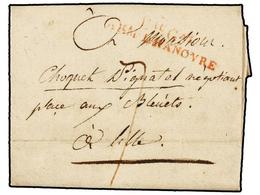 À Monsieur
ARM. D'HANOVRE
Choquet D'
negotiant
place aux Bleuets
à lille
7